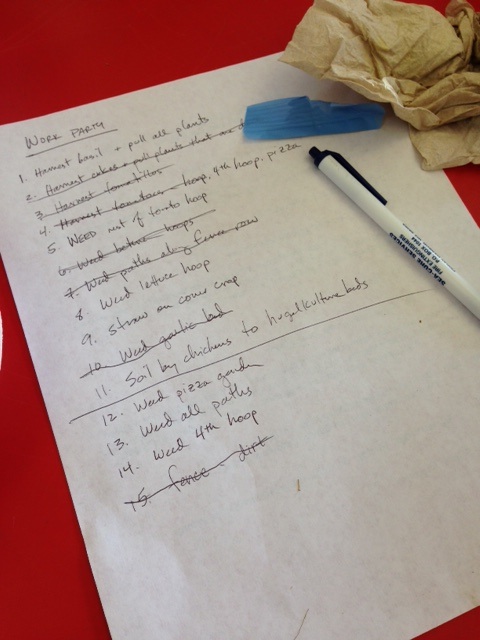 WORK PARTY
1. Harvest basil + pull all plants
2. Harvest cukes + pull plants that are d
3. Harvest tomatillos
4. Harvest tomatoes - hoop, 4th hoop, pizza
5. WEED rest of tomato hoop
6. Weed hoops
7. Weed paths along fence row
8. Weed lettuce hoop
9. Straw on cover crop
10. Weed garlic bed
11. Soil by chickens to hugelkulture beds
12. Weed pizza garden
13. Weed all paths
14. Weed 4th hoop
15. fence - dirt